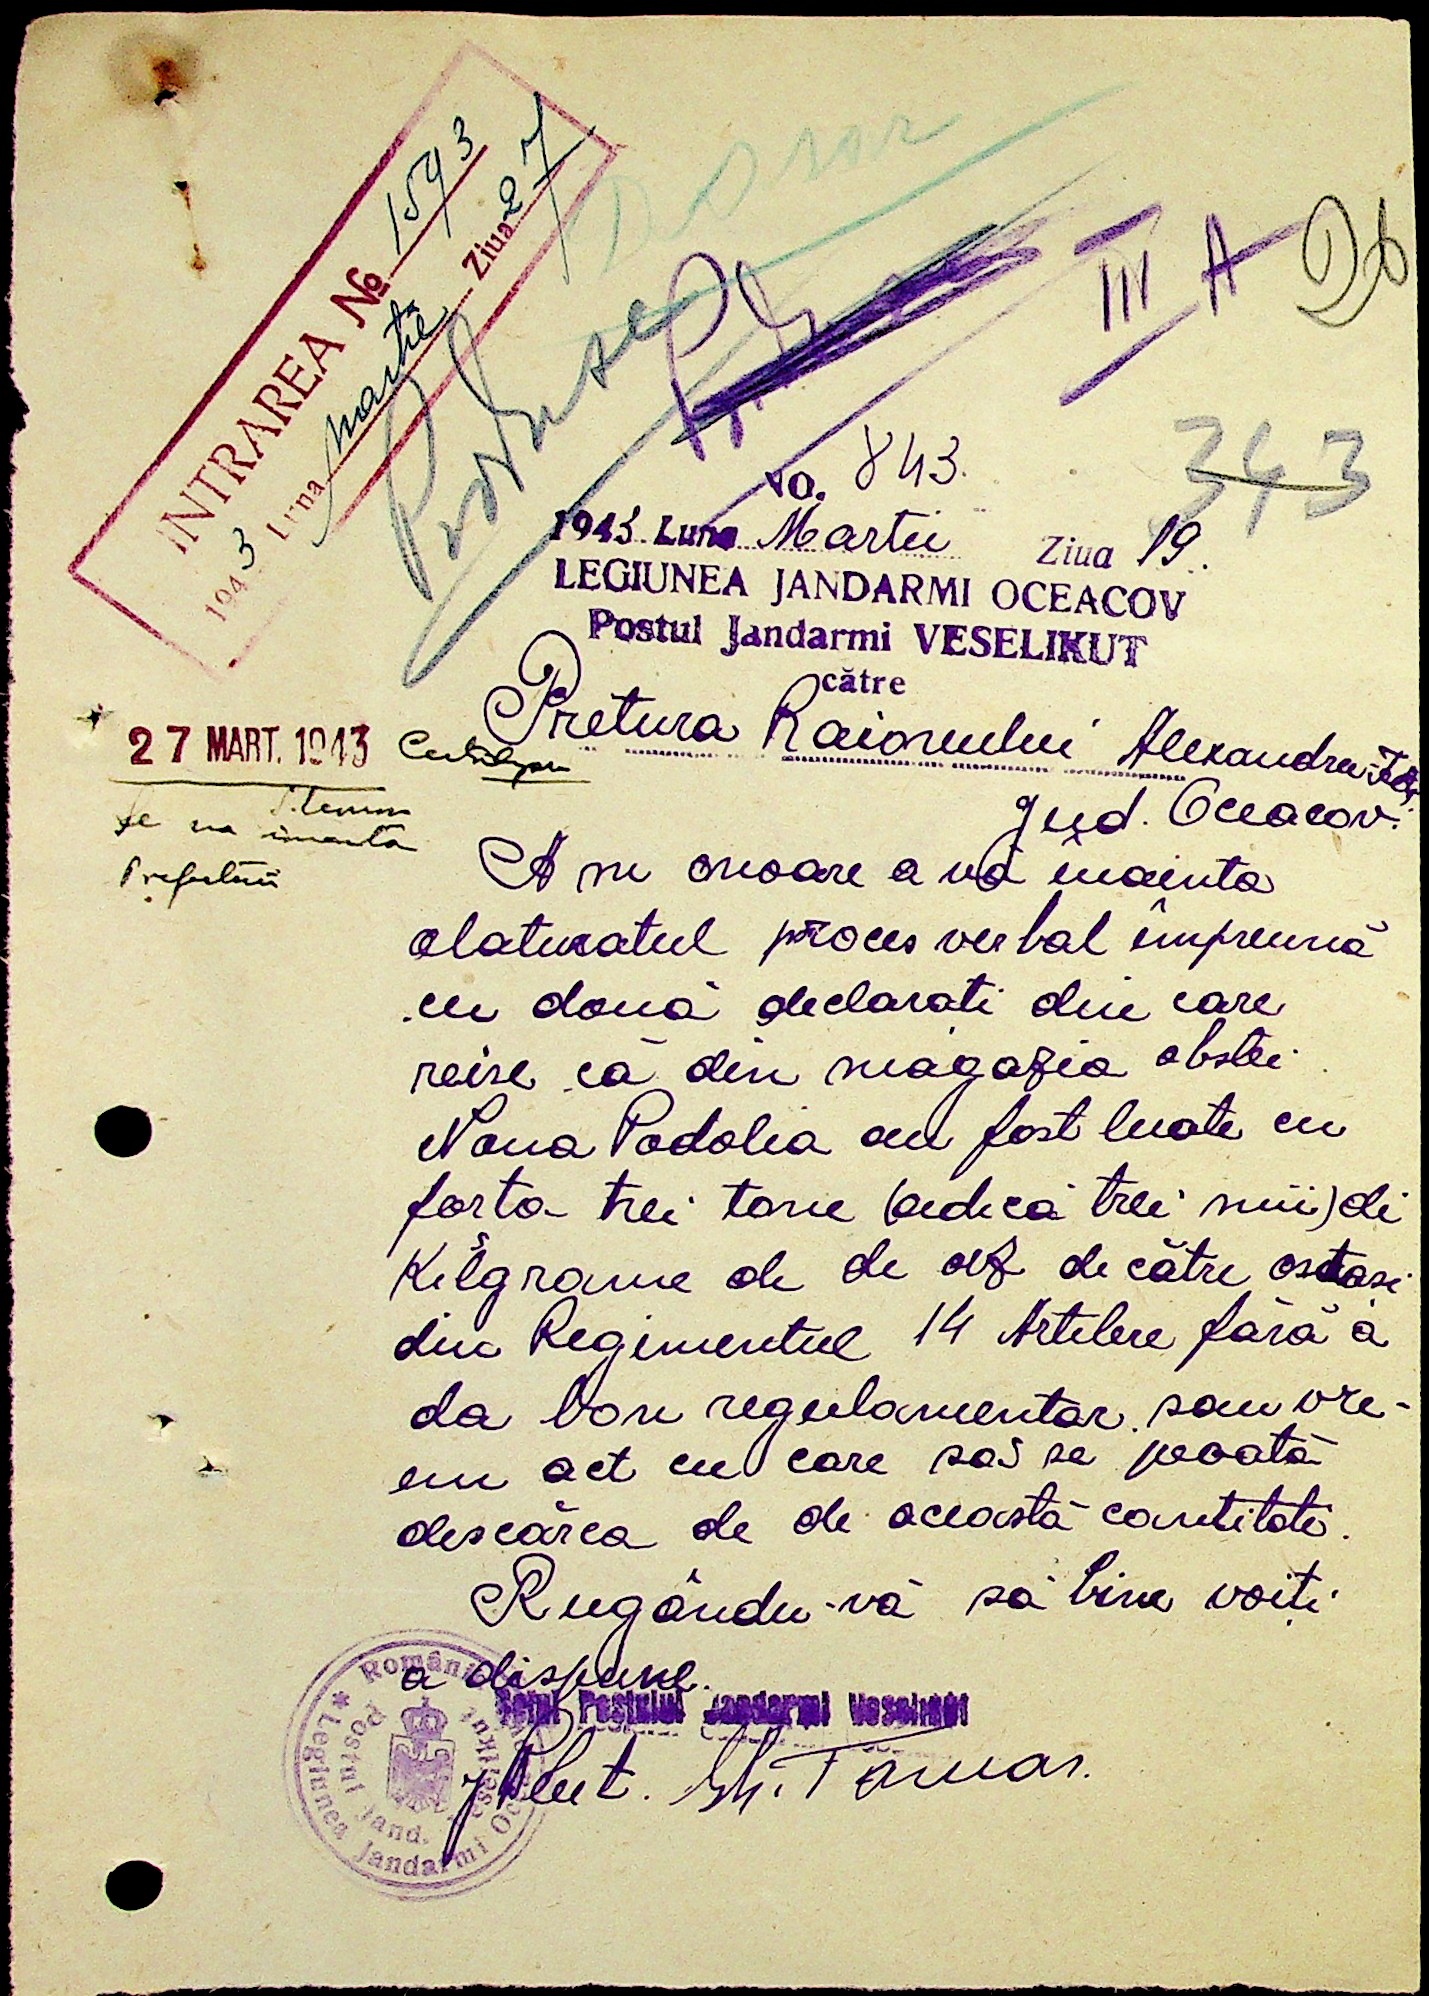 INTRAREA № 1593
1943 Luna Martie Ziua 27
Dosar
Produse
III A
343
No. 843.
1943 Luna Martie Ziua 19.
LEGIUNEA JANDARMI OCEACOV
Postul Jandarmi VESELIKUT
către
Pretura Raionului Alexandru
Jud. Oceacov.
27 MART. 1943
Se va înainta
Prefecturii
Am onoare a vă înainta
alaturatul proces verbal împreună
cu două declarati din care
reise că din magazia obstei
Noua Podolia au fost luate cu
forta trei tone (adică trei mii) de
Kilograme de de orz de către ostasi
din Regimentul 14 Artilerie fără a
da bon regulamentar sau vre-
un act cu care să se poată
descărca de de această cantitate.
Rugându-vă să bine voiți
a dispune.
Șeful Postului Jandarmi Veselikut
Plut. Gh. Tomas.
România
* Legiunea Jandarmi Oceacov
Postul Jand. Veselikut